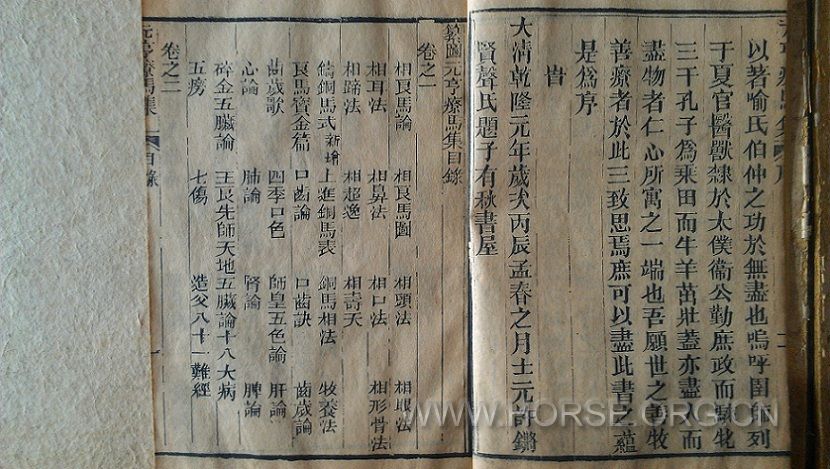 以著喻氏伯仲之功於無盡也嗚呼圉師列
于夏官醫獸隸於太僕衞公勤庶政而騋牝
三千孔子爲乗田而牛羊茁壯蓋亦盡人而
盡物者仁心所寓之一端也吾願世之善牧
善療者於此三致思焉庶可以盡此書之蘊
是爲序
旹
大清乾隆元年歲次丙辰孟春之月上元許鏘
賢聲氏題于有秋書屋
纂圖元亨療馬集目錄
卷之一
相良馬論 相良馬圖 相頭法 相眼法
相耳法 相鼻法 相口法 相形骨法
相蹄法 相超逸 相壽夭
鑄銅馬式 新增 上進銅馬表 銅馬相法 牧養法
良馬寶金篇 口齒論 口齒訣 齒歲論
齒歲歌 四季口色 師皇五色論 肝論
心論 肺論 腎論 脾論
碎金五臟論 王良先師天地五臟論十八大病
五癆 七傷 造父八十一難經
卷之二
元亨療馬集 目錄 一
WWW.HORSE.ORG.CN